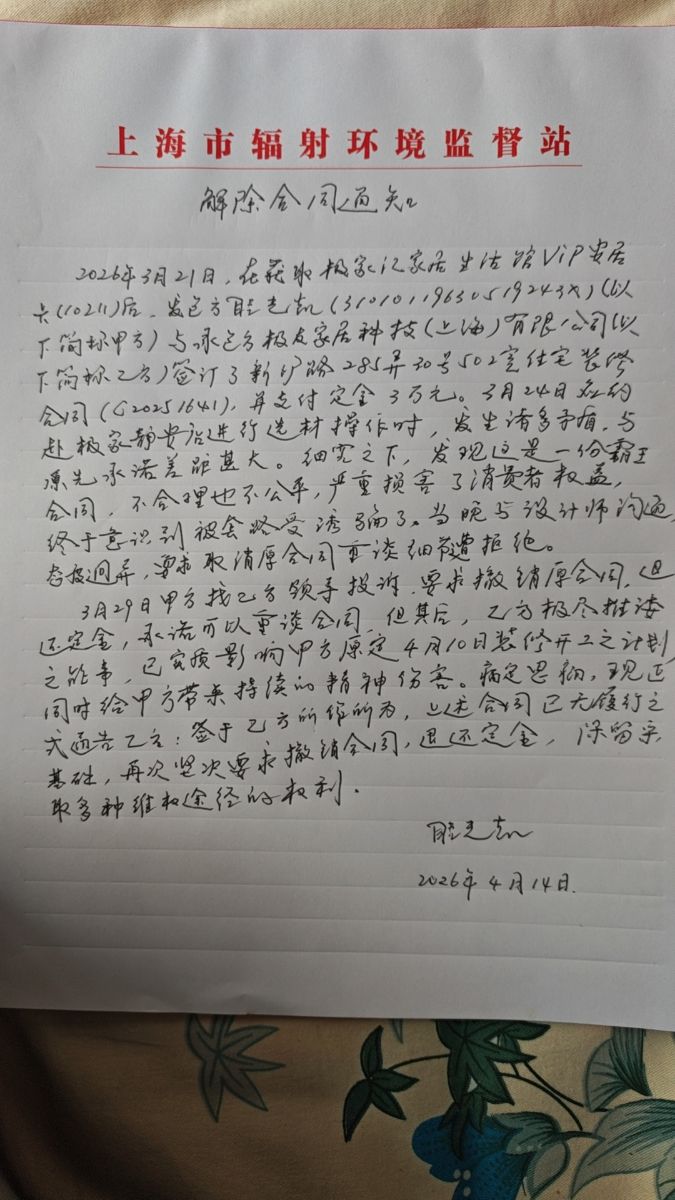 上海市辐射环境监督站
解除合同通知
2026年3月21日，在获取极家汇家居生活馆VIP安居
卡(10211)后，发包方眭光凯(31010119630519243X)(以
下简称甲方)与承包方极友家居科技(上海)有限公司(以
下简称乙方)签订了新沪路285弄30号502室住宅装修
合同(G20251641)，并支付定金3万元。3月24日应约
赴极家静安店进行选材操作时，发生诸多矛盾，与
原先承诺差距甚大。细究之下，发现这是一份霸王
合同，不合理也不公平，严重损害了消费者权益，
终于意识到被套路受诱骗了。当晚与设计师沟通，
态度迥异，要求取消原合同重谈细节遭拒绝。
3月29日甲方找乙方领导投诉，要求撤销原合同，但
还定金，承诺可以重谈合同，但其后，乙方极尽推诿
之能事，已实质影响甲方原定4月10日装修开工之计划，
同时给甲方带来持续的精神伤害。痛定思痛，现正
式通告乙方：签于乙方所作所为，上述合同已无履行之
基础，再次坚决要求撤销合同，退还定金，保留采
取多种维权途径的权利。
2026年4月14日.